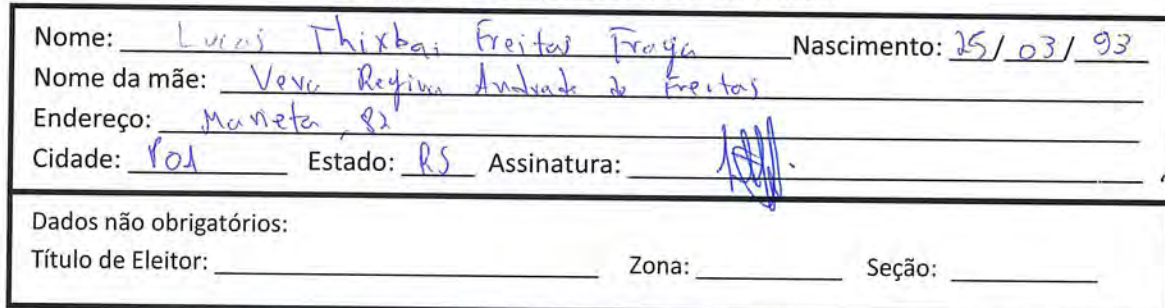 Nome: Lucas Thixbai Freitas Fraga Nascimento: 25/03/93
Nome da mãe: Vera Regina Andrade de Freitas
Endereço: Marieta, 82
Cidade: POA Estado: RS Assinatura:
Dados não obrigatórios:
Título de Eleitor: Zona: Seção: